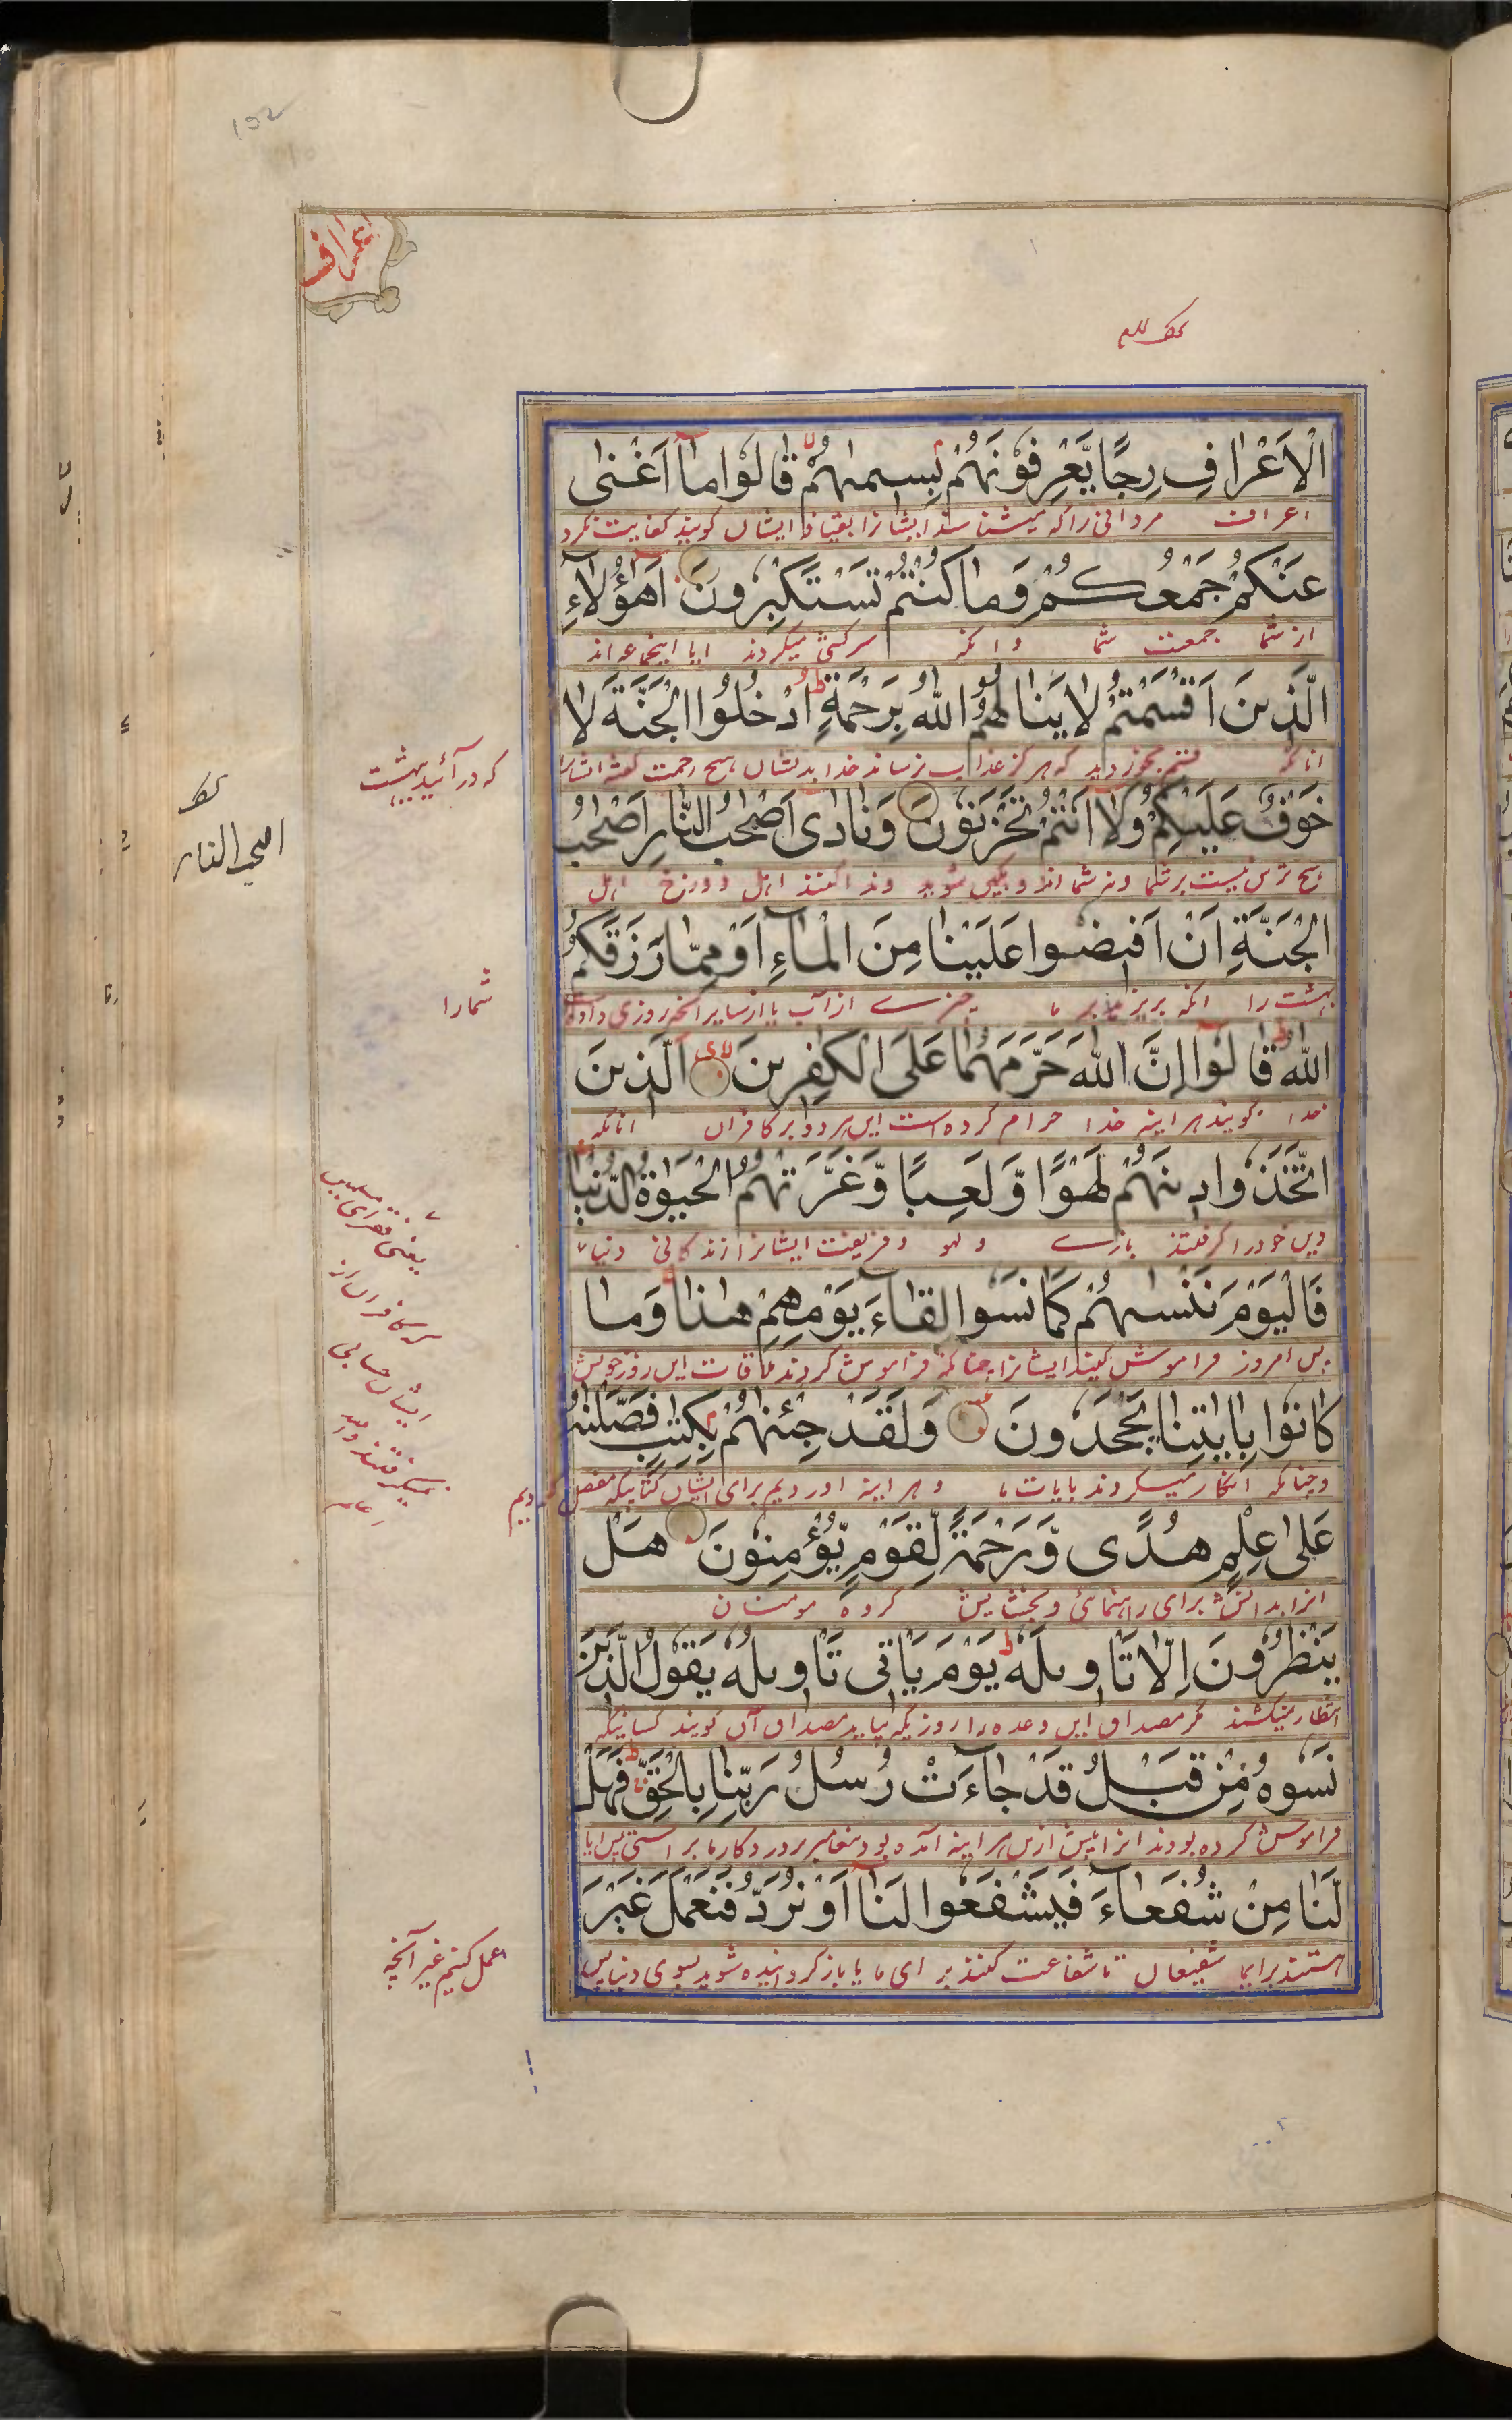 152
اعراف
الْاَعْرَافِ رِجًا یَّعْرِفُوْنَهُمْ بِسِیمٰىهُمْ قَالُوْا مَاۤ اَغْنٰى
اعراف مردانی را که میشناسند ایشانرا بقیافه ایشان کویند کفایت نکرد
عَنْكُمْ جَمْعُكُمْ وَمَا كُنْتُمْ تَسْتَكْبِرُونَ اَهٰۤؤُلَاۤءِ
از شما جمعت شما و انکه سرکشی میکردند ایا اینجماعه اند
الَّذِینَ اَقْسَمْتُمْ لَا یَنَالُهُمُ اللّٰهُ بِرَحْمَةٍ اُدْخُلُوا الْجَنَّةَ لَا
انانکه قسم میخوردید که هرکز خدا بدیشان هیچ رحمت
که در آئید بهشت
خَوْفٌ عَلَیْكُمْ وَلَاۤ اَنْتُمْ تَحْزَنُوْنَ وَنَادٰۤى اَصْحٰبُ النَّارِ اَصْحٰبَ
اصحٰب النار
هیچ ترس نیست بر شما و نه شما اندوهکین شوید و ندا کنند اهل دوزخ اهل
الْجَنَّةِ اَنْ اَفِیضُوا عَلَیْنَا مِنَ الْمَاۤءِ اَوْ مِمَّا رَزَقَكُمُ
بهشت را انکه بریزید بر ما چیزے از آب یا از سایر انچه روزی داده است
شما را
اللّٰهُ قَالُوْۤا اِنَّ اللّٰهَ حَرَّمَهُمَا عَلَى الْكٰفِرِینَ الَّذِینَ
خدا کویند هر اینه خدا حرام کرده است این هر دو بر کافران انانکه
اتَّخَذُوا دِینَهُمْ لَهْوًا وَّلَعِبًا وَّغَرَّتْهُمُ الْحَیٰوةُ الدُّنْیَا
دین خود را کرفتند بازے و لهو و فریفت ایشانرا زندکانی دنیا
یعنی فقرای مسلمین
فَالْیَوْمَ نَنْسٰىهُمْ كَمَا نَسُوا لِقَاۤءَ یَوْمِهِمْ هٰذَا وَمَا
پس امروز فراموش کنیم ایشانرا چنانکه فراموش کردند ملاقات این روز خویش
که کافران از
ایشان حسابی
نمیکرفتند
كَانُوْا بِاٰیٰتِنَا یَجْحَدُونَ وَلَقَدْ جِئْنٰهُمْ بِكِتٰبٍ فَصَّلْنٰهُ
و چنانکه انکار میکردند بایات ما و هر اینه اوردیم برای ایشان کتابیکه مفصل کردیم
عَلٰى عِلْمٍ هُدًى وَّرَحْمَةً لِّقَوْمٍ یُّؤْمِنُونَ هَلْ
انرا بدانش برای راهنمائی و بخشایش کروه مومنان
یَنْظُرُونَ اِلَّا تَاْوِیلَهٗ یَوْمَ یَاْتِی تَاْوِیلُهٗ یَقُوْلُ الَّذِینَ
انتظار نمیکشند مکر مصداق این وعده را روزیکه بیاید مصداق آن کویند کسانیکه
نَسُوْهُ مِنْ قَبْلُ قَدْ جَاۤءَتْ رُسُلُ رَبِّنَا بِالْحَقِّ فَهَلْ
فراموش کرده بودند انرا پیش ازین هر اینه آمده بودند پیغامبر پروردکار ما براستی پس ایا
لَّنَا مِنْ شُفَعَاۤءَ فَیَشْفَعُوا لَنَاۤ اَوْ نُرَدُّ فَنَعْمَلَ غَیْرَ
هستند برای ما شفیعان تا شفاعت کنند برای ما یا باز کردانیده شوید بسوی دنیا پس
عمل کنیم غیر آنچه